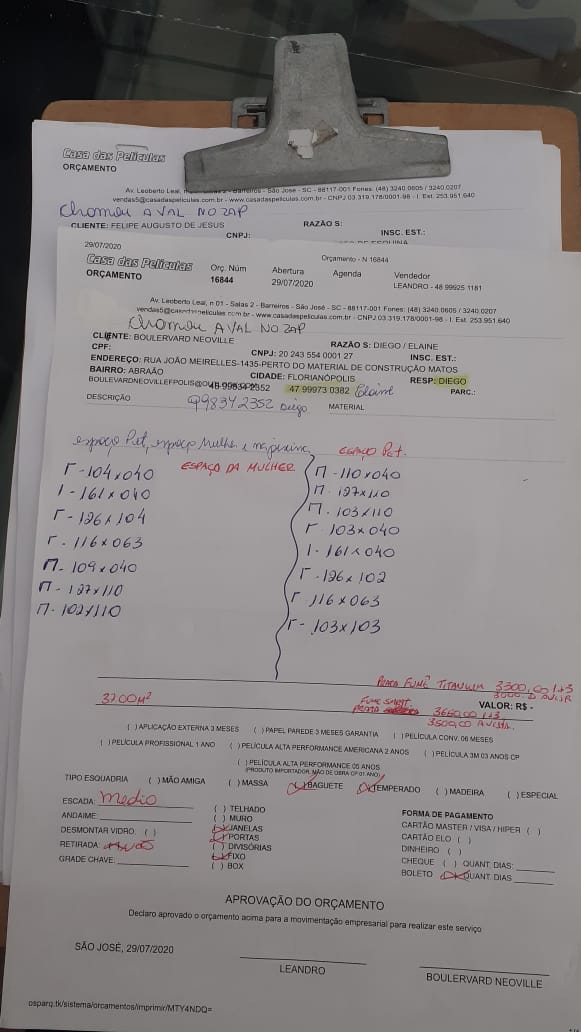 Casa das Películas
ORÇAMENTO
Av. Leoberto Leal, Barreiros - São José - SC - 88117-001 Fones: (48) 3240.0605 / 3240.0207
vendas5@casadaspeliculas.com.br - www.casadaspeliculas.com.br - CNPJ 03.319.178/0001-98 - I. Est. 253.951.640
Chamou A VAL NO ZAP
CLIENTE: FELIPE AUGUSTO DE JESUS RAZÃO S:
CNPJ: INSC. EST.:
29/07/2020 Orçamento - N 16844
Casa das Películas Orç. Núm Abertura Agenda Vendedor
ORÇAMENTO 16844 29/07/2020 LEANDRO - 48 99925 1181
Av. Leoberto Leal, n 01 - Salas 2 - Barreiros - São José - SC - 88117-001 Fones: (48) 3240.0605 / 3240.0207
vendas5@casadaspeliculas.com.br - www.casadaspeliculas.com.br - CNPJ 03.319.178/0001-98 - I. Est. 253.951.640
Chamou A VAL NO ZAP
CLIENTE: BOULERVARD NEOVILLE RAZÃO S: DIEGO / ELAINE
CPF: CNPJ: 20 243 554 0001 27 INSC. EST.:
ENDEREÇO: RUA JOÃO MEIRELLES-1435-PERTO DO MATERIAL DE CONSTRUÇÃO MATOS
BAIRRO: ABRAÃO CIDADE: FLORIANÓPOLIS RESP: DIEGO
48 99834 2352 47 99973 0382 Elaine PARC.:
DESCRIÇÃO 998342352 Diego MATERIAL
espaço Pet, espaço Mulher e
ESPAÇO DA MULHER ESPAÇO Pet.
Γ - 104x040
I - 161x040
Γ - 126x104
Γ - 116x063
Π - 109x040
Π - 127x110
Π - 102x110
Π - 110x040
Π - 127x110
Π - 103x110
Γ 103x040
I - 161x040
Γ - 126x102
Γ 116x063
Γ - 103x103
FUMÊ TITANIUM 3300,00 1+3
3000,0 AVISTA
3700M² FUME SMART 3660,00 1+3 VALOR: R$ -
3500,00 AVISTA.
( ) APLICAÇÃO EXTERNA 3 MESES ( ) PAPEL PAREDE 3 MESES GARANTIA ( ) PELÍCULA CONV. 06 MESES
( ) PELÍCULA PROFISSIONAL 1 ANO ( ) PELÍCULA ALTA PERFORMANCE AMERICANA 2 ANOS ( ) PELÍCULA 3M 03 ANOS CP
( ) PELÍCULA ALTA PERFORMANCE 05 ANOS
(PRODUTO IMPORTADOR, MÃO DE OBRA CP 01 ANO)
TIPO ESQUADRIA ( ) MÃO AMIGA ( ) MASSA (X) BAGUETE (X) TEMPERADO ( ) MADEIRA ( ) ESPECIAL
ESCADA: Medio
ANDAIME:
DESMONTAR VIDRO: ( )
RETIRADA:
GRADE CHAVE:
( ) TELHADO
( ) MURO
(X) JANELAS
(X) PORTAS
( ) DIVISÓRIAS
(X) FIXO
( ) BOX
FORMA DE PAGAMENTO
CARTÃO MASTER / VISA / HIPER ( )
CARTÃO ELO ( )
DINHEIRO ( )
CHEQUE ( ) QUANT. DIAS:
BOLETO (X) QUANT. DIAS
APROVAÇÃO DO ORÇAMENTO
Declaro aprovado o orçamento acima para a movimentação empresarial para realizar este serviço
SÃO JOSÉ, 29/07/2020
LEANDRO
BOULERVARD NEOVILLE
osparq.tk/sistema/orcamentos/imprimir/MTY4NDQ=